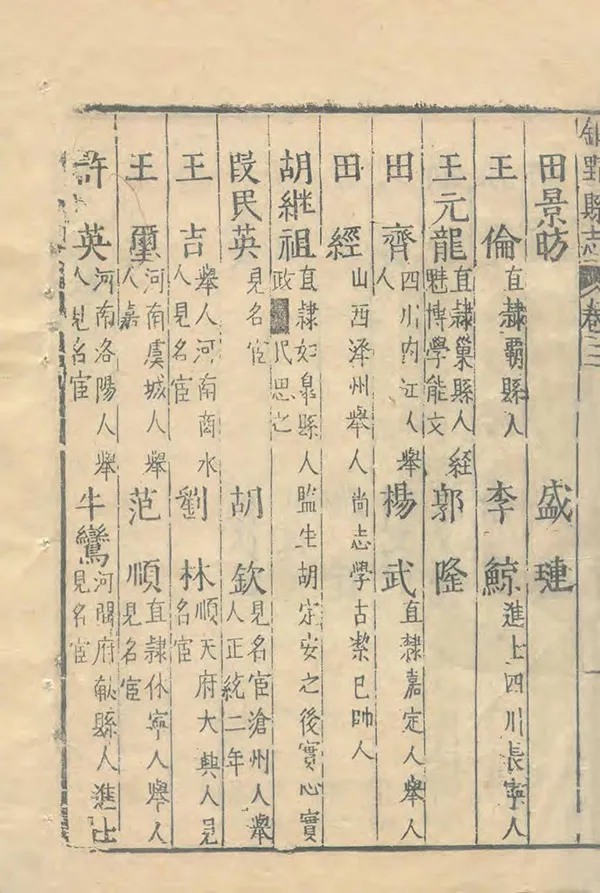 鉅野縣志 卷三
田景昉 盛璉
王倫 直隸霸縣人 李鯨 進士四川長寧人
王元龍 直隸巢縣人経魁博學能文 郭隆
田齊 四川內江人舉人 楊武 直隸嘉定人舉人
田經 山西澤州舉人尚志學古潔己帥人
胡繼祖 直隸如臯縣人監生胡定安之後實心實政 思之
段民英 見名宦 胡欽 見名宦滄州人舉人正統二年
王吉 舉人河南商水人見名宦 劉林 順天府大興人見名宦
王璽 河南虞城人舉人嘉 范順 直隸休寧人舉人見名宦
許英 河南洛陽人舉人見名宦 牛鸞 河間府献縣人進士見名宦